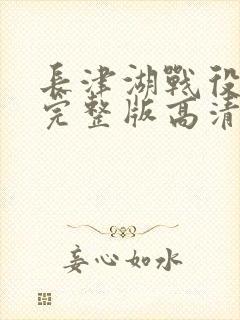 長津湖戰役
完整版高清
妄心如水